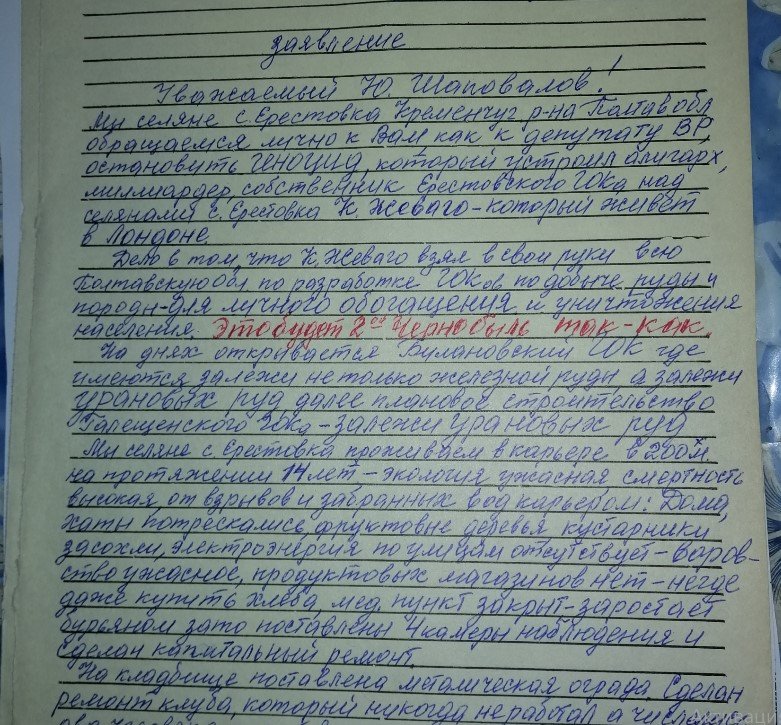 заявление
Уважаемый Ю. Шаповалов!
Мы селяне с. Ерестовка Кременчуг р-на Полтав обл
обращаемся лично к Вам как к депутату ВР
остановить геноцид, который устроил алигарх,
миллиардер, собственник Ерестовского ГОКа над
селянами с. Ерестовка К. Жеваго - который живёт
в Лондоне.
Дело в том, что К. Жеваго взял в свои руки всю
Полтавскую обл по разработке ГОКов по добыче руды и
породы - для личного обогащения и уничтожения
населения. Это будет 2ой Чернобыль так-как.
На днях открывается Булановский ГОК где
имеются залежи не только железной руды а залежи
урановых руд далее плановое строительство
Галещенского Гока - залежи урановых руд
Мы селяне с Ерестовка проживаем в карьере в 200 м.
на протяжении 14 лет - экология ужасная смертность
высокая, от взрывов и забранных вод карьером: Дома,
хаты потрескались, фруктовые деревья кустарники
засохли, электроэнергия по улицам отсутствует - воров-
ство ужасное, продуктовых магазинов нет - негде
даже купить хлеба, мед. пункт закрыт - заростает
бурьяном зато поставлены 4 камеры наблюдения и
сделан капитальный ремонт.
На кладбище поставлена металическая ограда Сделан
ремонт клуба, который никогда не работал а числ